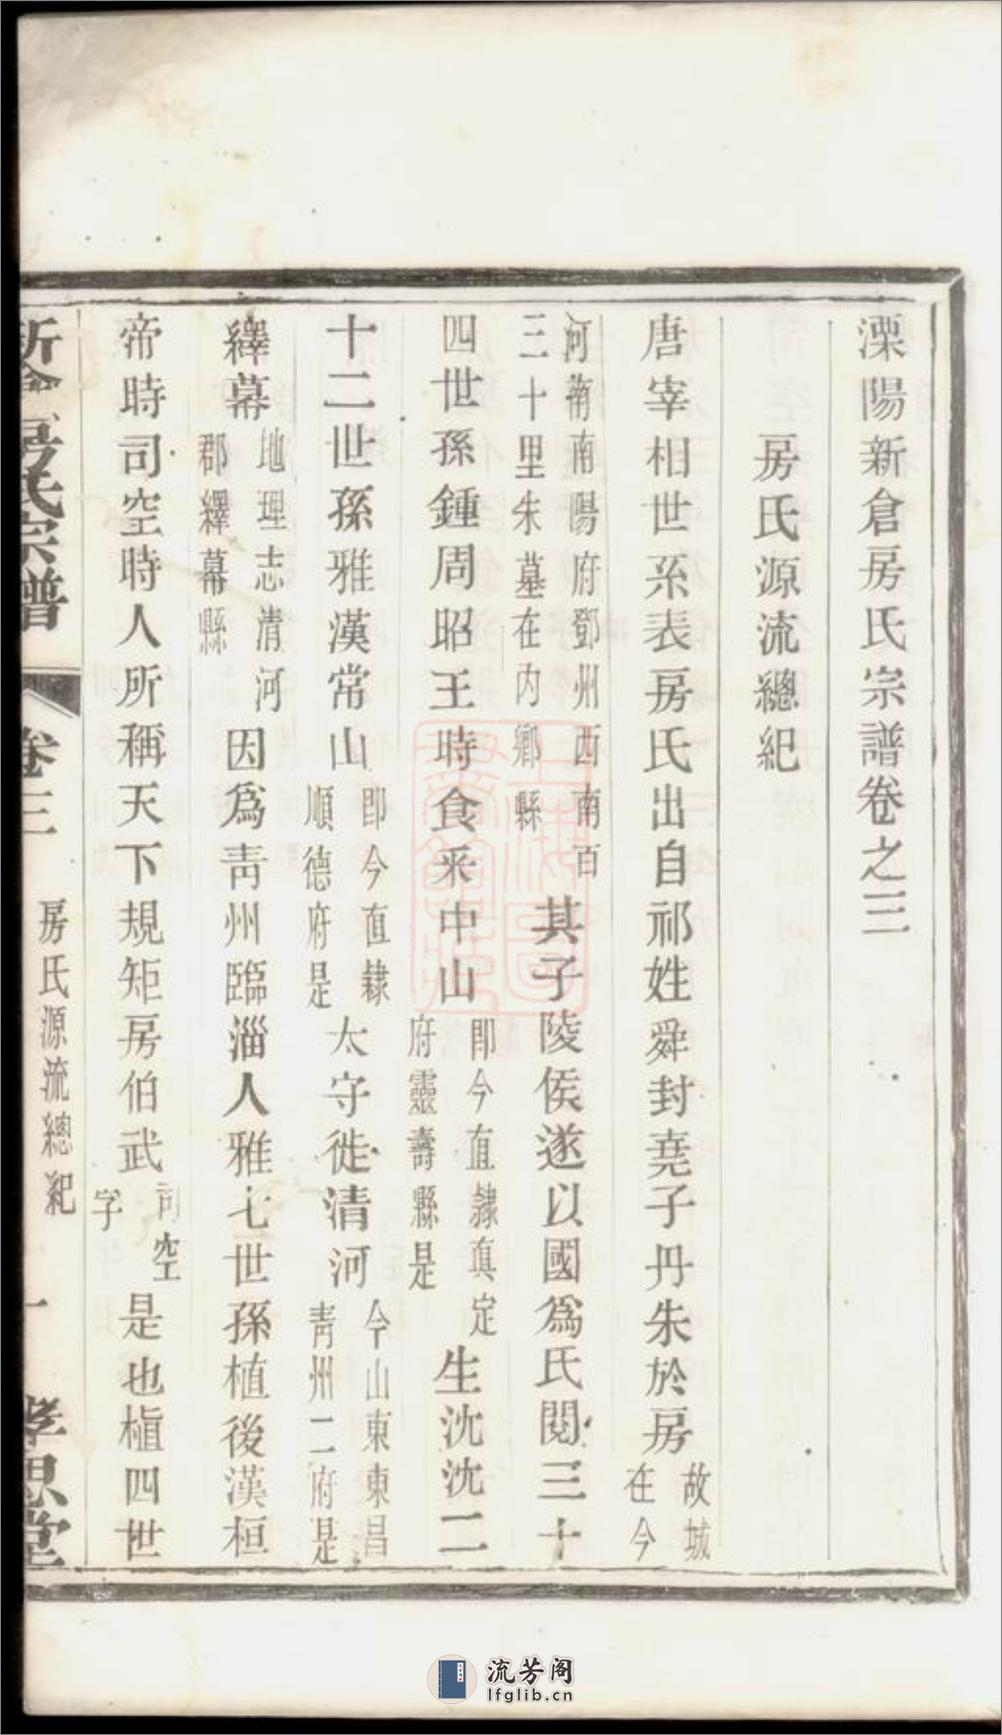 溧陽新倉房氏宗譜卷之三
房氏源流總紀
唐宰相世系表房氏出自祁姓舜封堯子丹朱於房故城
在今
河南南陽府鄧州西南百
三十里朱墓在内鄉縣
其子陵侯遂以國爲氏閱三十
四世孫鍾周昭王時食采中山
即今直隸真定
府靈壽縣是
生沈沈二
十二世孫雅漢常山
即今直隸
順德府是
太守徙清河
今山東東昌
青州二府是
繹幕
地理志清河
郡繹幕縣
因爲青州臨淄人雅七世孫植後漢桓
帝時司空時人所稱天下規矩房伯武
司空
字
是也植四世
新倉房氏宗譜
卷三
房氏源流總紀
一
孝思堂
流芳阁
lfglib.cn